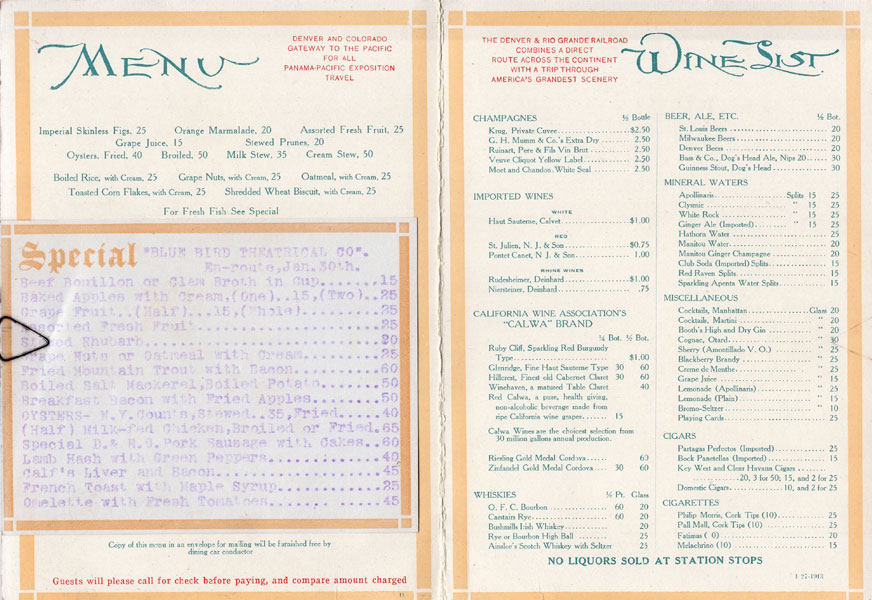 MENU
DENVER AND COLORADO
GATEWAY TO THE PACIFIC
FOR ALL
PANAMA-PACIFIC EXPOSITION
TRAVEL
Imperial Skinless Figs, 25 Orange Marmalade, 20 Assorted Fresh Fruit, 25
Grape Juice, 15 Stewed Prunes, 20
Oysters, Fried, 40 Broiled, 50 Milk Stew, 35 Cream Stew, 50
Boiled Rice, with Cream, 25 Grape Nuts, with Cream, 25 Oatmeal, with Cream, 25
Toasted Corn Flakes, with Cream, 25 Shredded Wheat Biscuit, with Cream, 25
For Fresh Fish See Special
Special "BLUE BIRD THEATRICAL CO".
En-route, Jan. 30th.
Beef Bouillon or Clam Broth in Cup.......15
Baked Apples with Cream,(One)..15,(Two)..25
Grape Fruit..(Half)...15,(Whole).........25
Assorted Fresh Fruit.....................25
Stewed Rhubarb...........................20
Grape Nuts or Oatmeal with Cream.........25
Fried Mountain Trout with Bacon..........60
Boiled Salt Mackerel,Boiled Potato.......50
Breakfast Bacon with Fried Apples........50
OYSTERS- N.Y.Counts,Stewed..35,Fried.....40
(Half) Milk-fed Chicken,Broiled or Fried.65
Special D.& R.G.Pork Sausage with Cakes..60
Lamb Hash with Green Peppers.............40
Calf's Liver and Bacon...................45
French Toast with Maple Syrup............25
Omelette with Fresh Tomatoes.............45
Copy of this menu in an envelope for mailing will be furnished free by
dining car conductor
Guests will please call for check before paying, and compare amount charged
THE DENVER & RIO GRANDE RAILROAD
COMBINES A DIRECT
ROUTE ACROSS THE CONTINENT
WITH A TRIP THROUGH
AMERICA'S GRANDEST SCENERY
WINE LIST
CHAMPAGNES ½ Bottle
Krug, Private Cuvee $2.50
G. H. Mumm & Co.'s Extra Dry 2.50
Ruinart, Pere & Fils Vin Brut 2.50
Veuve Cliquot Yellow Label 2.50
Moet and Chandon, White Seal 2.50
IMPORTED WINES
WHITE
Haut Sauterne, Calvet $1.00
RED
St. Julien, N. J. & Son $0.75
Pontet Canet, N. J. & Son 1.00
RHINE WINES
Rudesheimer, Deinhard $1.00
Niersteiner, Deinhard .75
CALIFORNIA WINE ASSOCIATION'S
"CALWA" BRAND
¼ Bot. ½ Bot.
Ruby Cliff, Sparkling Red Burgundy
Type $1.00
Glenridge, Fine Haut Sauterne Type 30 60
Hillcrest, Finest old Cabernet Claret 30 60
Winehaven, a matured Table Claret 40
Red Calwa, a pure, health giving,
non-alcoholic beverage made from
ripe California wine grapes 15
Calwa Wines are the choicest selection from
30 million gallons annual production.
Riesling Gold Medal Cordova 60
Zinfandel Gold Medal Cordova 30 60
WHISKIES Pt. Glass
O. F. C. Bourbon 60 20
Carstairs Rye 60 20
Bushmills Irish Whiskey 20
Rye or Bourbon High Ball 25
Ainslee's Scotch Whiskey with Seltzer 25
BEER, ALE, ETC. ½ Bot.
St. Louis Beers 20
Milwaukee Beers 20
Denver Beers 20
Bass & Co., Dog's Head Ale, Nips 20 30
Guinness Stout, Dog's Head 30
MINERAL WATERS
Apollinaris Splits 15 25
Clysmic " 15 25
White Rock " 15 25
Ginger Ale (Imported) " 15 25
Hathorn Water 25
Manitou Water 20
Manitou Ginger Champagne 20
Club Soda (Imported) Splits 15
Red Raven Splits 15
Sparkling Apenta Water Splits 15
MISCELLANEOUS
Cocktails, Manhattan Glass 20
Cocktails, Martini " 20
Booth's High and Dry Gin " 20
Cognac, Otard " 30
Sherry (Amontillado V. O.) " 25
Blackberry Brandy " 25
Creme de Menthe " 25
Grape Juice " 15
Lemonade (Apollinaris) " 25
Lemonade (Plain) " 15
Bromo-Seltzer " 10
Playing Cards 25
CIGARS
Partagas Perfectos (Imported) 25
Bock Panetellas (Imported) 15
Key West and Clear Havana Cigars
20, 3 for 50; 15, and 2 for 25
Domestic Cigars 10, and 2 for 25
CIGARETTES
Philip Morris, Cork Tips (10) 25
Pall Mall, Cork Tips (10) 25
Fatimas ( 0) 20
Melachrino (10) 15
NO LIQUORS SOLD AT STATION STOPS
1-27-1913